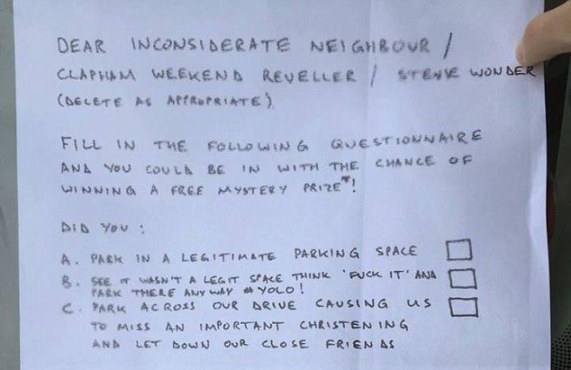 DEAR INCONSIDERATE NEIGHBOUR /
CLAPHAM WEEKEND REVELLER / STEVIE WONDER
(DELETE AS APPROPRIATE)
FILL IN THE FOLLOWING QUESTIONNAIRE
AND YOU COULD BE IN WITH THE CHANCE OF
WINNING A FREE MYSTERY PRIZE*!
DID YOU:
A. PARK IN A LEGITIMATE PARKING SPACE
B. SEE IT WASN'T A LEGIT SPACE THINK 'FUCK IT' AND
PARK THERE ANYWAY #YOLO!
C. PARK ACROSS OUR DRIVE CAUSING US
TO MISS AN IMPORTANT CHRISTENING
AND LET DOWN OUR CLOSE FRIENDS